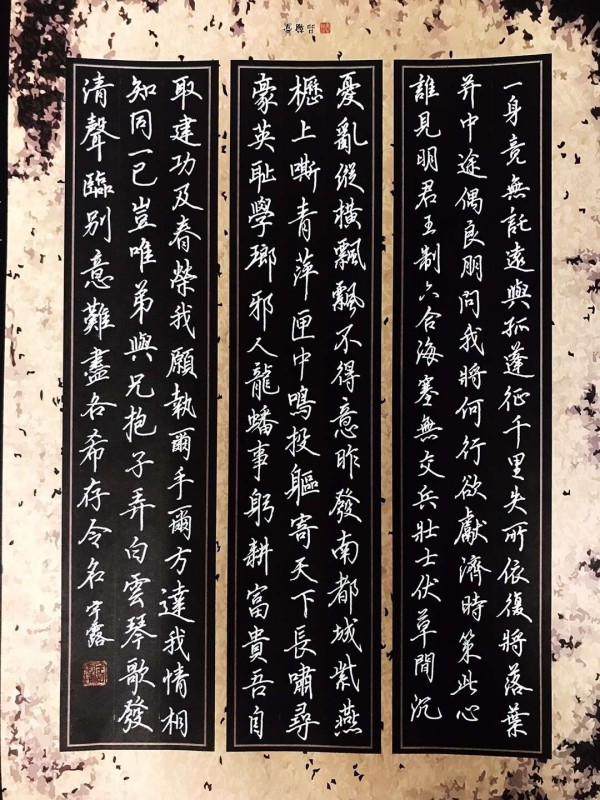 一身竟無託遠與孤蓬征千里失所依復將落葉
并中途偶良朋問我將何行欲獻濟時策此心
誰見明君王制六合海塞無交兵壯士伏草間沉
憂亂縱橫飄飄不得意昨發南都城紫燕
櫪上嘶青萍匣中鳴投軀寄天下長嘯尋
豪英耻學瑯邪人龍蟠事躬耕富貴吾自
取建功及春榮我願執爾手爾方達我情相
知同一已豈唯弟與兄抱子弄白雲琴歌發
清聲臨別意難盡各希存令名